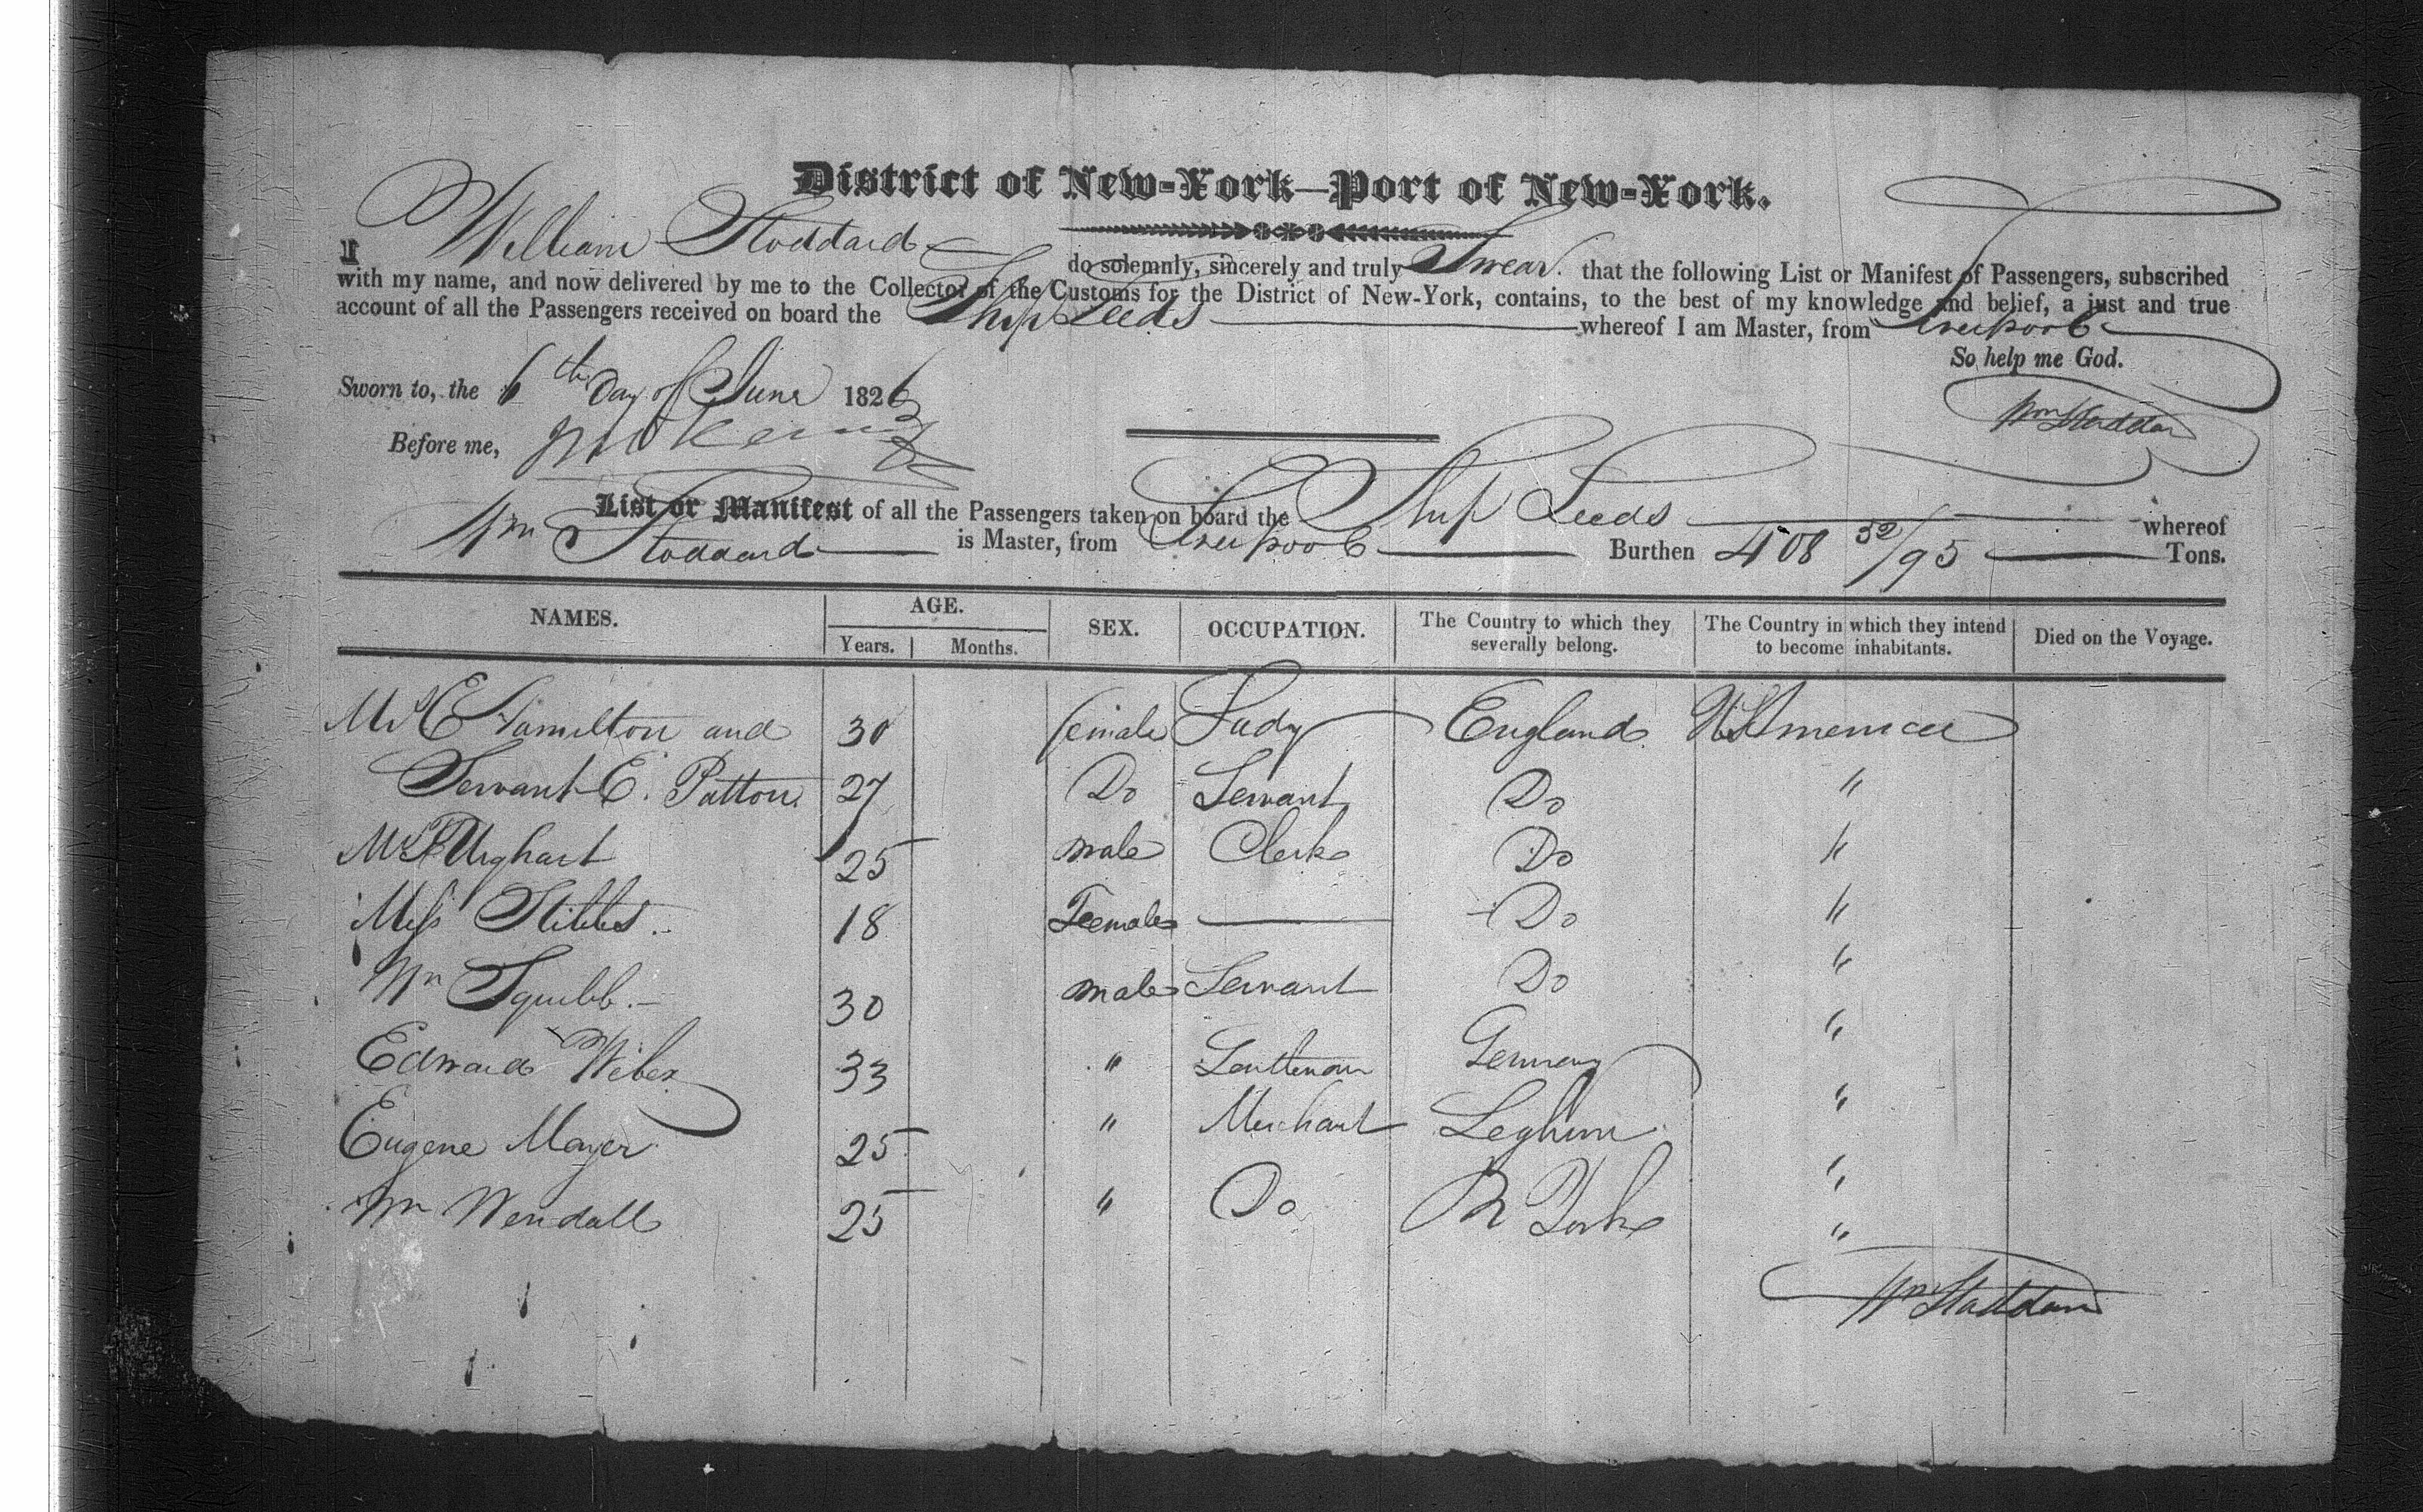 District of New-York—Port of New-York.
I William Stoddard do solemnly, sincerely and truly Swear that the following List or Manifest of Passengers, subscribed
with my name, and now delivered by me to the Collector of the Customs for the District of New-York, contains, to the best of my knowledge and belief, a just and true
account of all the Passengers received on board the Ship Leeds whereof I am Master, from Liverpool
So help me God.
Sworn to, the 6th Day of June 1826
Wm Stoddard
Before me,
List or Manifest of all the Passengers taken on board the Ship Leeds whereof
Wm Stoddard is Master, from Liverpool Burthen 408 32/95 Tons.
NAMES. AGE. SEX. OCCUPATION. The Country to which they severally belong. The Country in which they intend to become inhabitants. Died on the Voyage.
Years. Months.
Mrs E Hamilton and 30 female Lady England U S America
Servant E. Patton 27 Do Servant Do "
Mr Urghart 25 male Clerk Do "
Miss Stibbs 18 Female — Do "
Wm Squibb. 30 male Servant Do "
Edward Weber 33 " Germany "
Eugene Mayer 25 " Merchant Leghorn "
Wm Wendall 25 " Do N York "
Wm Stoddard